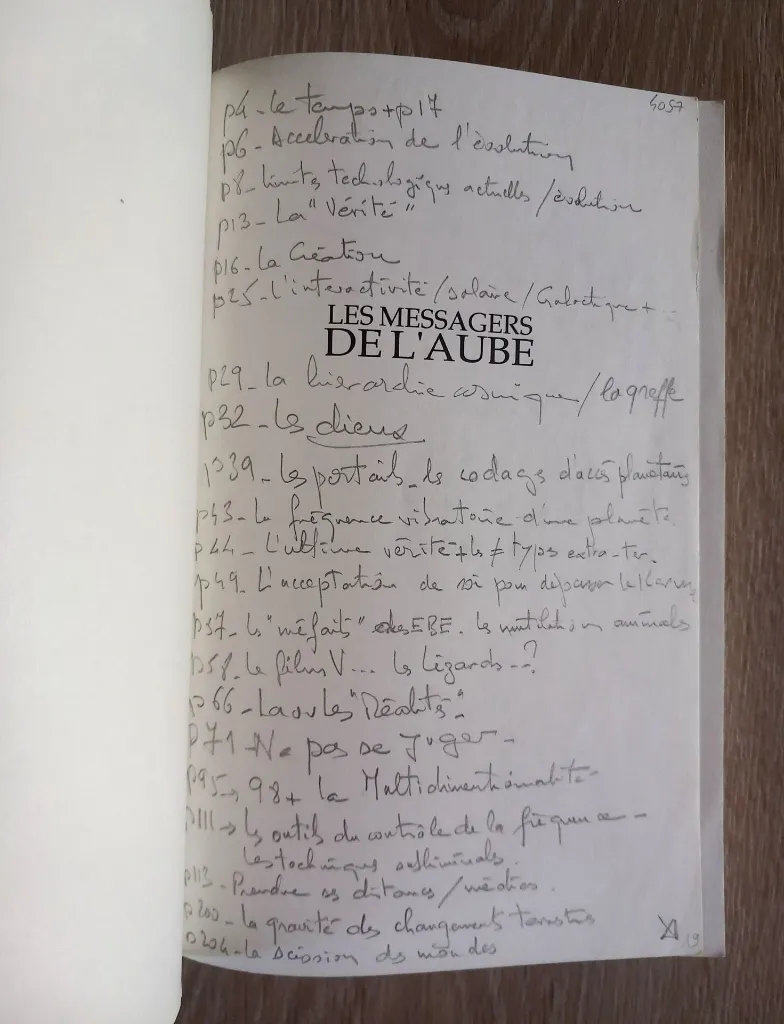 4057
p4 - le temps + p17
p6 - Acceleration de l'évolution
p8 - limites technologiques actuelles / évolution
p13 - La "Vérité"
p16 - La Création
p25 - L'interactivité / solaire / Galactique + ...
LES MESSAGERS
DE L'AUBE
p29 - La hierarchie cosmique / la greffe
p32 - Les dieux
p39 - Les portails - les codages d'accès planétaires
p43 - La fréquence vibratoire d'une planète.
p44 - L'ultime vérité + les ≠ types extra-ter.
p49 - L'acceptation de soi pour dépasser le Karma
p57 - les "méfaits" des EBE. les mutilations animales
p58 - le film V... les lézards - - ?
p66 - La ou les "Réalités".
p71 - Ne pas se Juger -
p95 → 98 + la Multidimentionalité -
p111 → les outils du contrôle de la fréquence -
les techniques subliminales.
p113 - Prendre ses distances / médias.
p200 - la gravité des changements terrestres
p204 - la scission des mondes